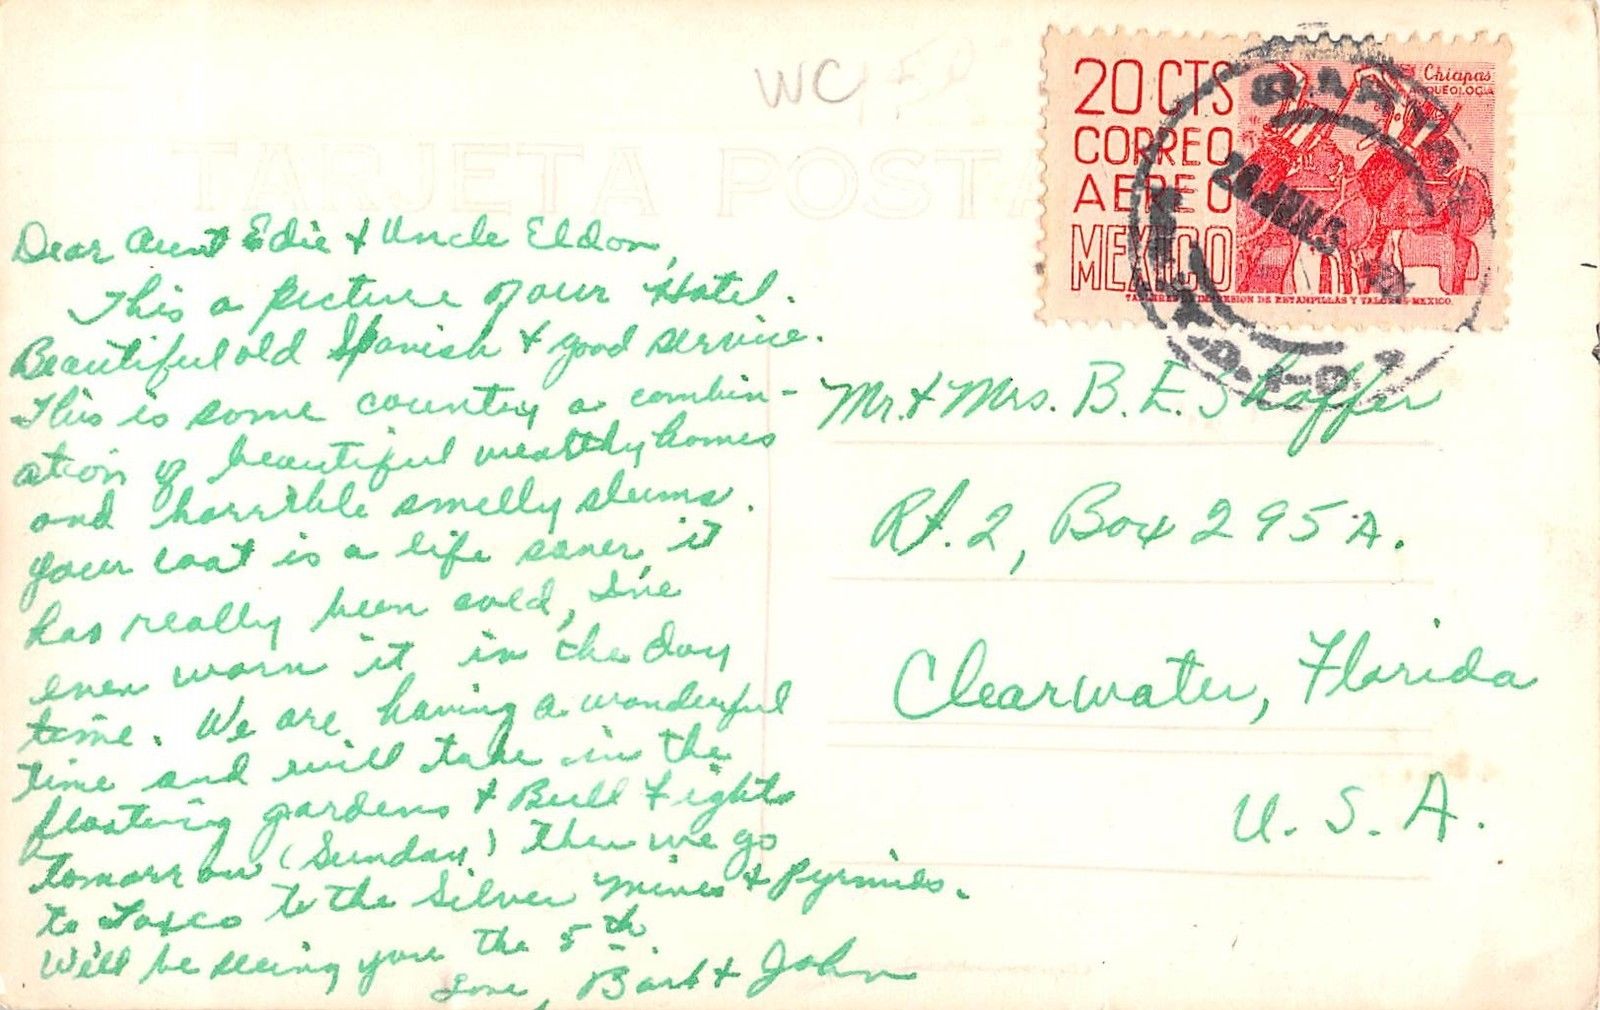 WC
TARJETA POSTA
20 CTS
CORREO
AEREO
MEXICO
Chiapas
ARQUEOLOGIA
TALLERES DE IMPRESION DE ESTAMPILLAS Y VALORES-MEXICO.
Dear Aunt Edie & Uncle Eldon,
This a picture of our Hotel.
Beautiful old Spanish & good service.
This is some country a combin-
ation of beautiful wealthy homes
and horrible smelly slums.
your coat is a life saver, it
has really been cold, I've
even worn it in the day
time. We are having a wonderful
time and will take in the
floating gardens & Bull Fights
tomorrow (Sunday) then we go
to Taxco to the Silver Mines & Pyrmids.
We'll be seeing you the 5th.
Love, Barb & John
Mr. & Mrs. B. E. Shoffer
Rt. 2, Box 295A.
Clearwater, Florida
U. S. A.